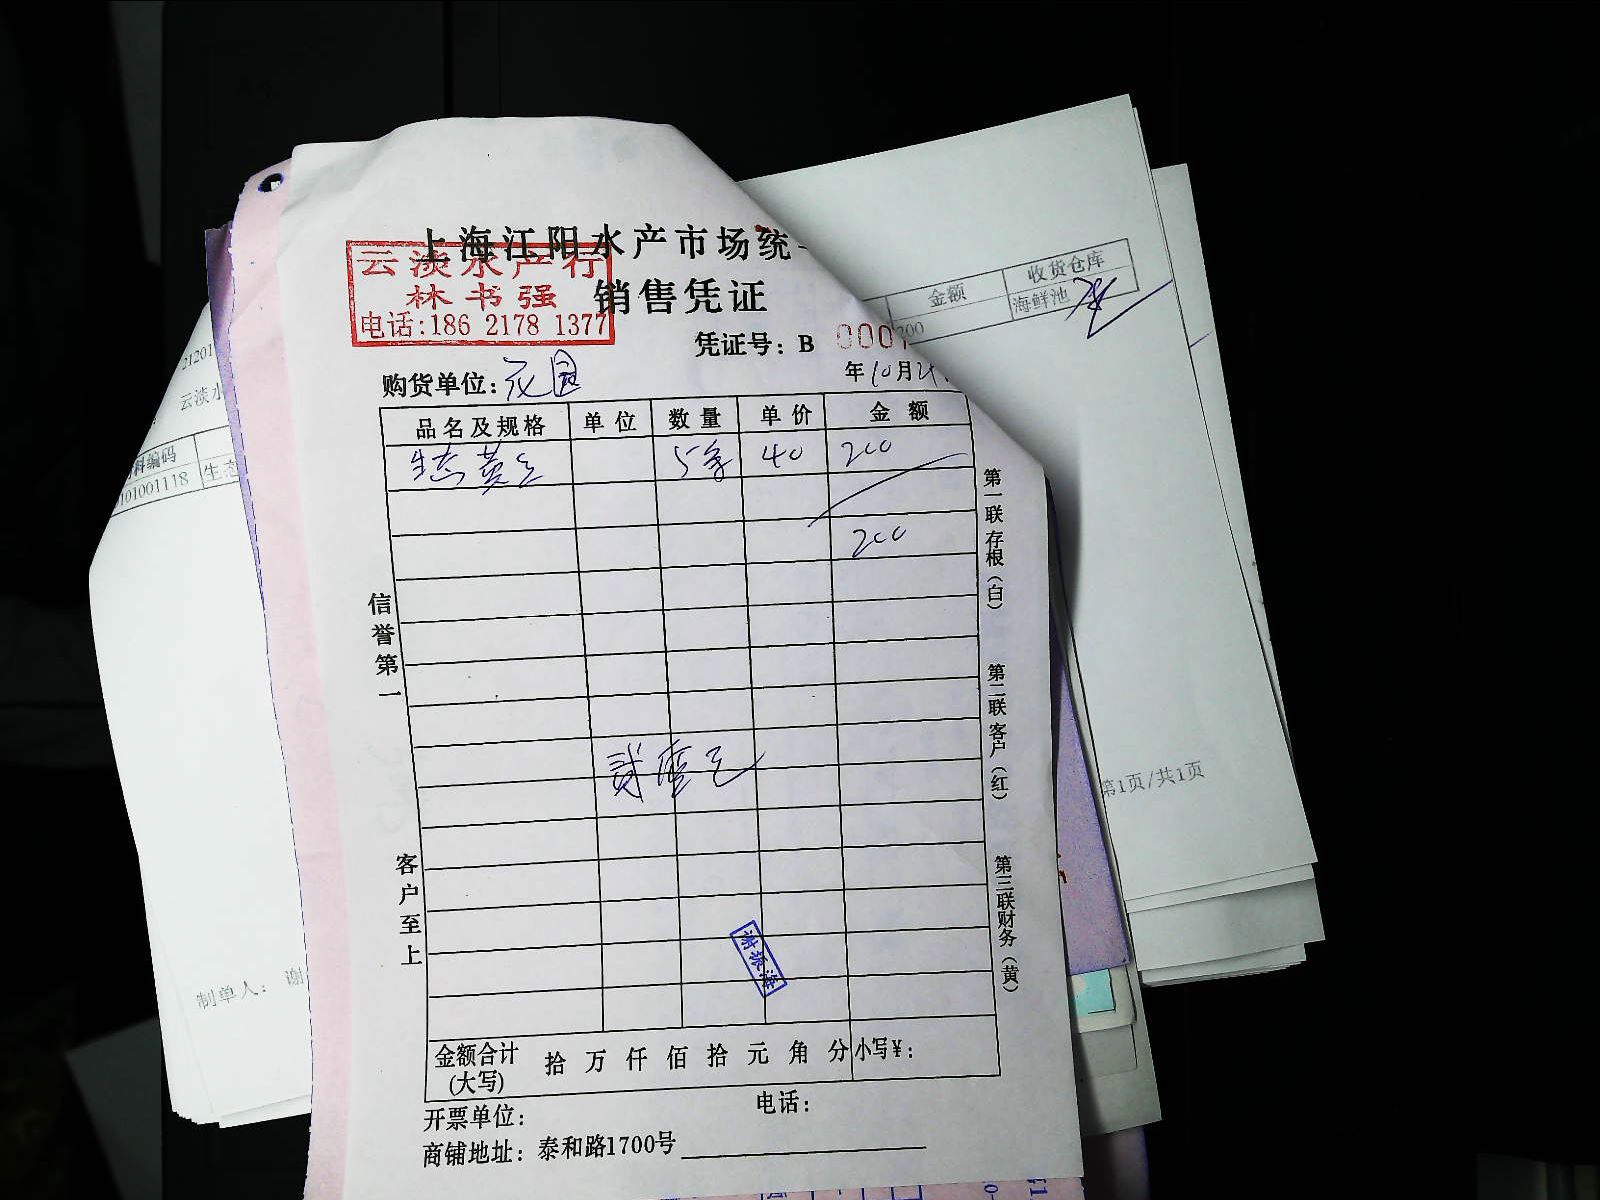 上海江阳水产市场统一
云淡水产行
林书强
电话:186 2178 1377
销售凭证
凭证号：B 000
购货单位：花园
年10月2
品名及规格 单位 数量 单价 金额
生态黄 5 40 200
200
信誉第一
客户至上
第一联存根（白）
第二联客户（红）
第三联财务（黄）
谢振海
金额合计(大写) 拾 万 仟 佰 拾 元 角 分 小写¥：
开票单位：
电话：
商铺地址：泰和路1700号
金额 收货仓库
200 海鲜池
第1页/共1页
21201
云淡水
料编码
101001118 生态
制单人： 谢